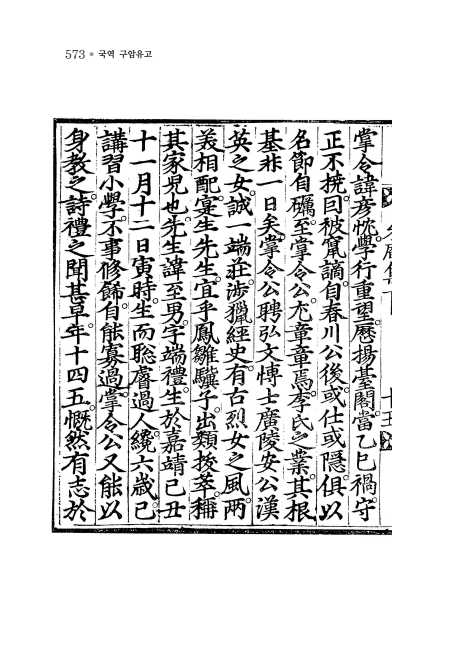 573 ● 국역 구암유고
掌令諱彦忱。學行重望。歷揚臺閣。當乙巳禍。守
正不撓。囙被竄謫。自春川公後。或仕或隱。俱以
名節自礪。至掌令公。尤童童焉。李氏之業。其根
基非一日矣。掌令公聘弘文博士廣陵安公漢
英之女。誠一端莊。涉獵經史。有古烈女之風。兩
義相配。寔生先生。宜乎鳳雛驥子。出類拔萃。稱
其家兒也。先生諱至男。字端禮。生於嘉靖己丑
十一月十二日寅時。生而聡睿過人。纔六歲。已
講習小學。不事修餙。自能寡過。掌令公又能以
身敎之。詩禮之聞甚早。年十四五。慨然有志於